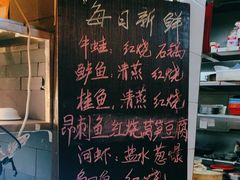 每日新鲜
牛蛙:红烧 石锅
鲈鱼:清蒸 红烧
桂鱼:清蒸 红烧
昂刺鱼 红烧莴笋豆腐
河虾:盐水 葱爆